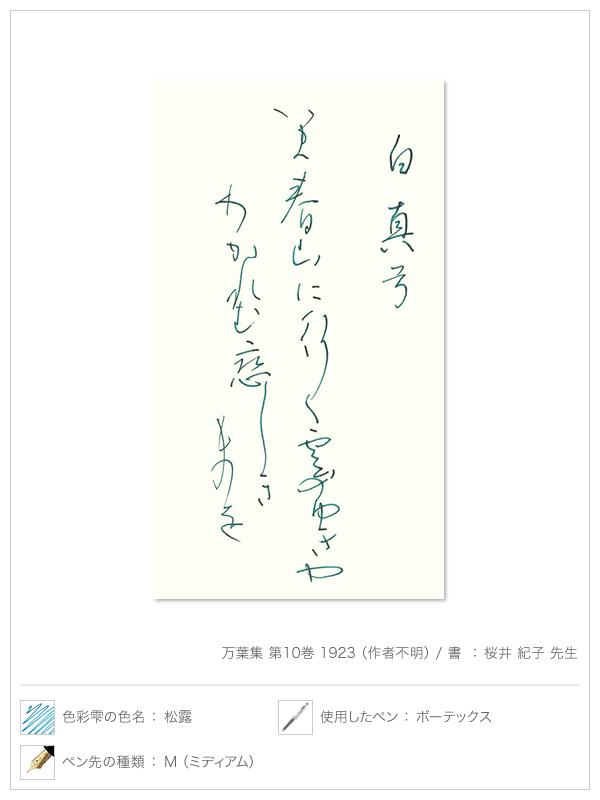 白真弓
いま春山に行く雲のゆきや
わかれむ恋しき
ものを
万葉集 第10巻 1923（作者不明）/ 書 ： 桜井 紀子 先生
色彩雫の色名 ： 松露
使用したペン ： ボーテックス
ペン先の種類 ： M（ミディアム）